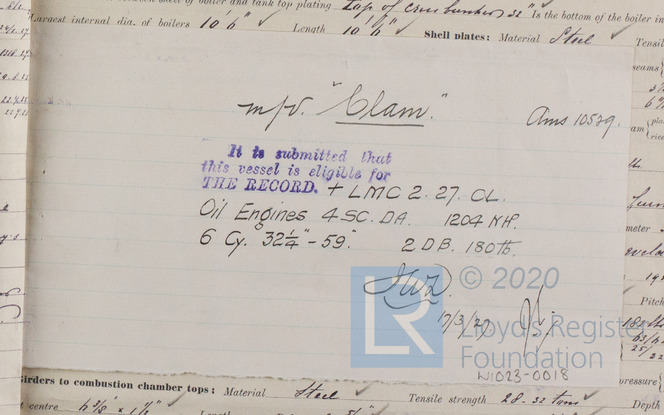 boiler and tank top plating Top of cross bunkers 32" Is the bottom of the boiler
Largest internal dia. of boilers 10' 6" Length 10' 6" Shell plates: Material Steel Tensile
m/v. "Clam." Ams 10529.
It is submitted that
this vessel is eligible for
THE RECORD. + LMC 2.27. CL.
Oil Engines 4 SC. DA. 1204 NH.
6 Cy. 32¼" - 59". 2 DB. 180 lb.
17/3/27
LR © 2020
Lloyd's Register
Foundation
W1023-0018
Girders to combustion chamber tops: Material Steel Tensile strength 28-32 tons
centre Length Depth